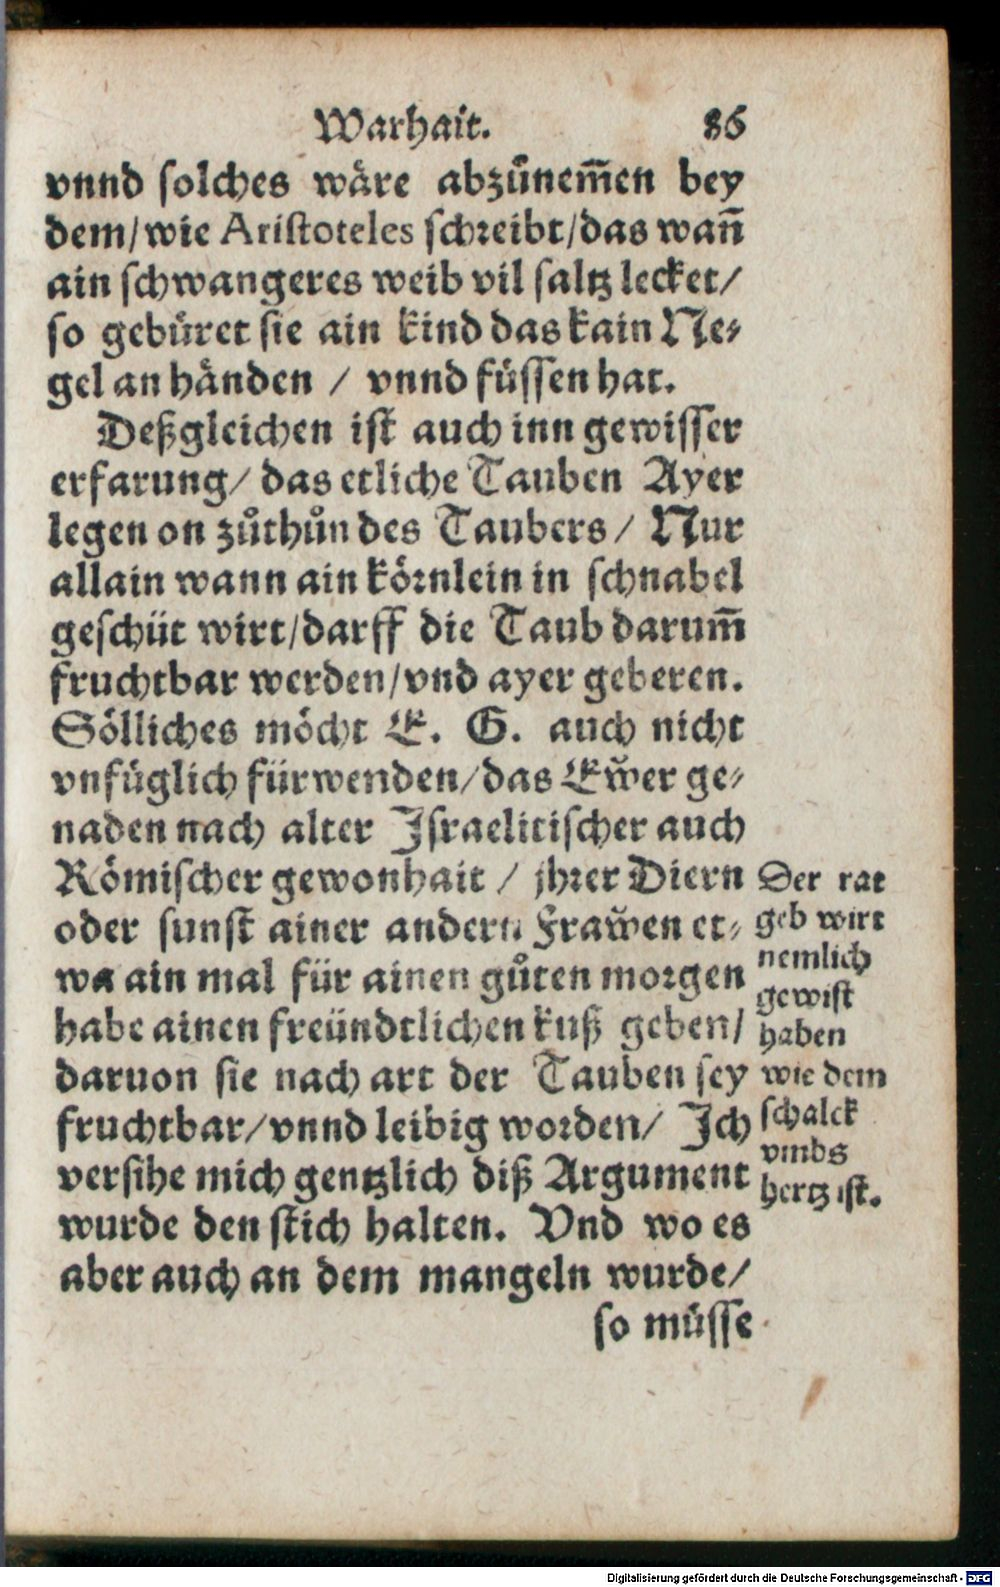 Warhait. 86
vnnd solches wäre abzůnem̃en bey
dem/wie Aristoteles schreibt/das wañ
ain schwangeres weib vil saltz lecket/
so gebüret sie ain kind das kain Ne⸗
gel an händen / vnnd füssen hat.
Deßgleichen ist auch inn gewisser
erfarung/ das etliche Tauben Ayer
legen on zůthůn des Taubers / Nur
allain wann ain körnlein in schnabel
geschüt wirt/darff die Taub darum̃
fruchtbar werden/vnd ayer geberen.
Sölliches möcht E. G. auch nicht
vnfüglich fürwenden/das Ewer ge⸗
naden nach alter Israelitischer auch
Römischer gewonhait / jhrer Diern
oder sunst ainer andern Frawen et⸗
wa ain mal für ainen gůten morgen
habe ainen freündtlichen kuß geben/
daruon sie nach art der Tauben sey
fruchtbar/vnnd leibig worden/ Ich
versihe mich gentzlich diß Argument
wurde den stich halten. Vnd wo es
aber auch an dem mangeln wurde/
so müsse
Der rat
geb wirt
nemlich
gewist
haben
wie dem
schalck
vmbs
hertz ist.
Digitalisierung gefördert durch die Deutsche Forschungsgemeinschaft - DFG